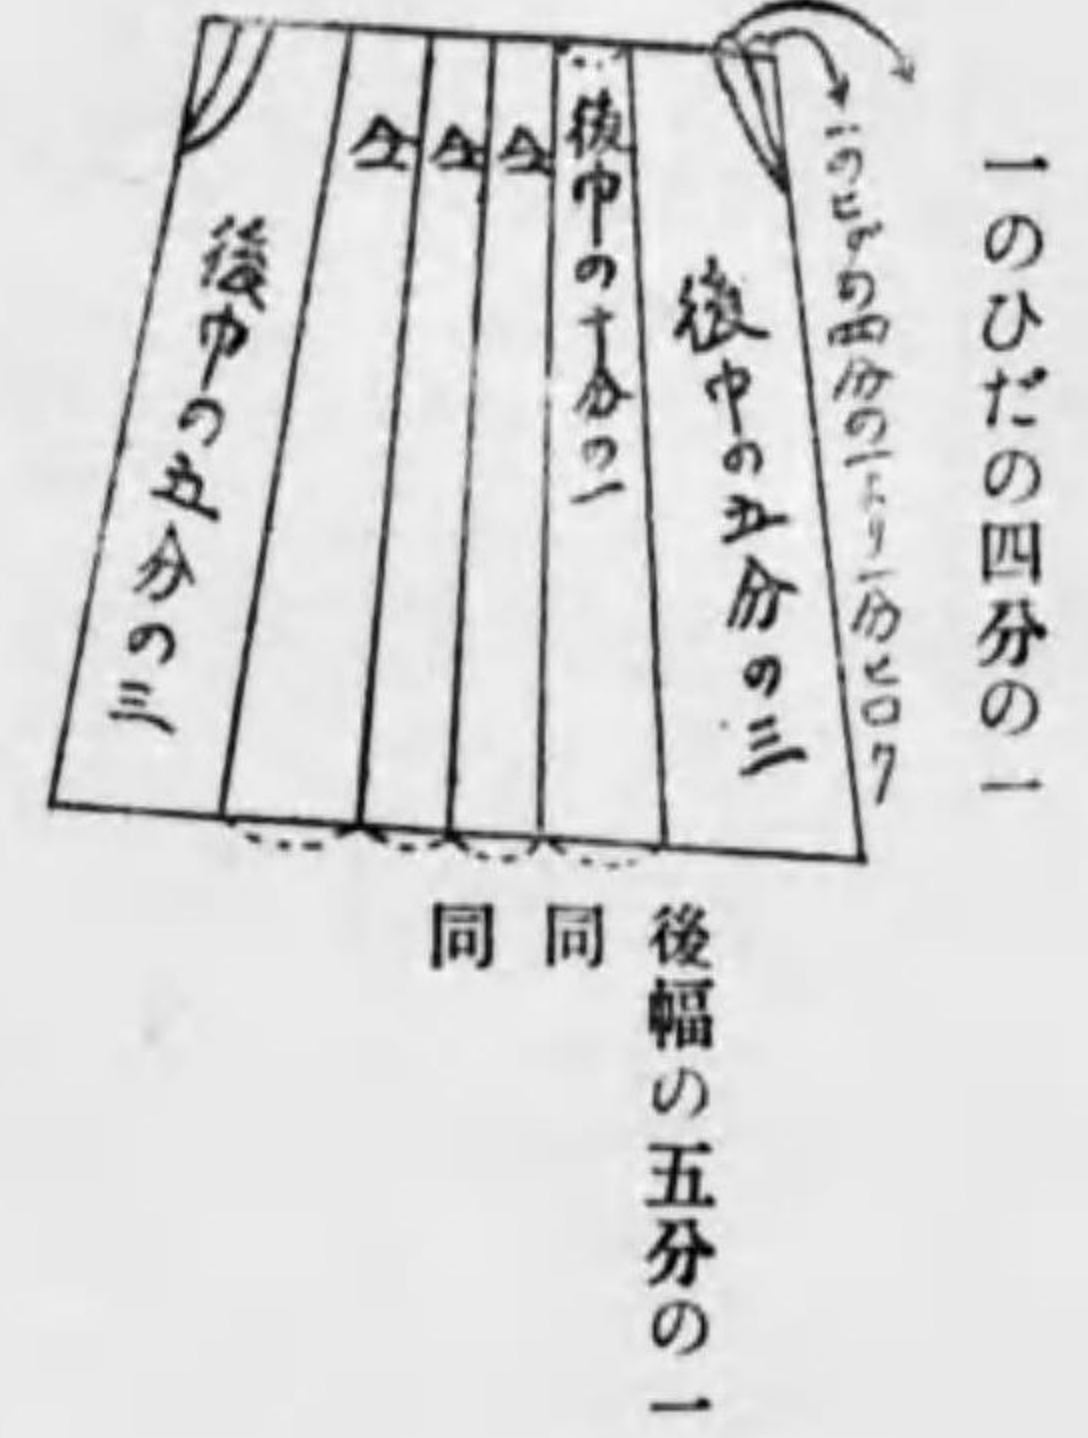 一のひだの四分の一
二のヒダの四分の一ヨリ一分ヒロク
後巾の五分の三
後巾の十分の一
仝
仝
仝
後巾の五分の三
後幅の五分の一
同
同